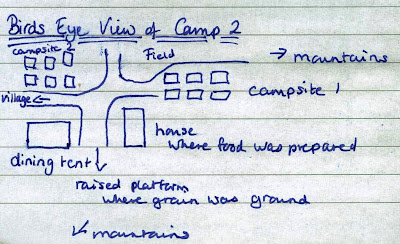 Birds Eye View of Camp 2
campsite 2
Field
→ mountains
village ←
campsite 1
house
where food was prepared
dining tent
raised platform
where grain was ground
↙ mountains